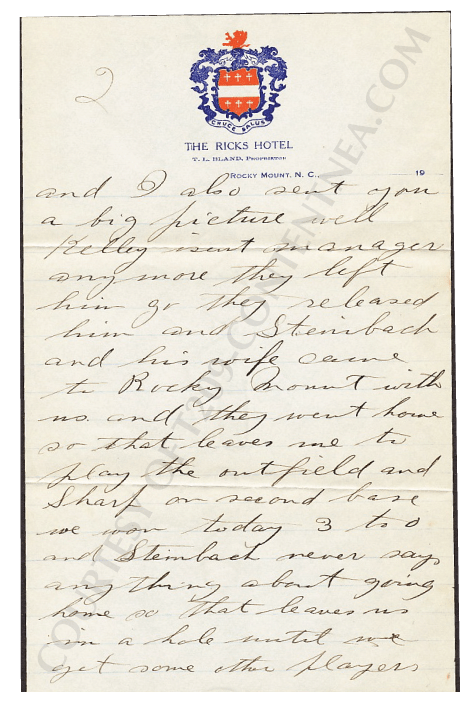 2
CRUCE SALUS
THE RICKS HOTEL
T. L. BLAND, PROPRIETOR
ROCKY MOUNT, N. C., 19
and I also sent you
a big picture well
Kelley isent manager
any more they left
him go they released
him and Steinbach
and his wife came
to Rocky Mount with
us and they went home
so that leaves me to
play the outfield and
Sharp on second base
we won today 3 to 0
and Steinbach never says
any thing about going
home so that leaves us
in a hole until we
get some other players
COURTESY OF T209-CONTENTNEA.COM